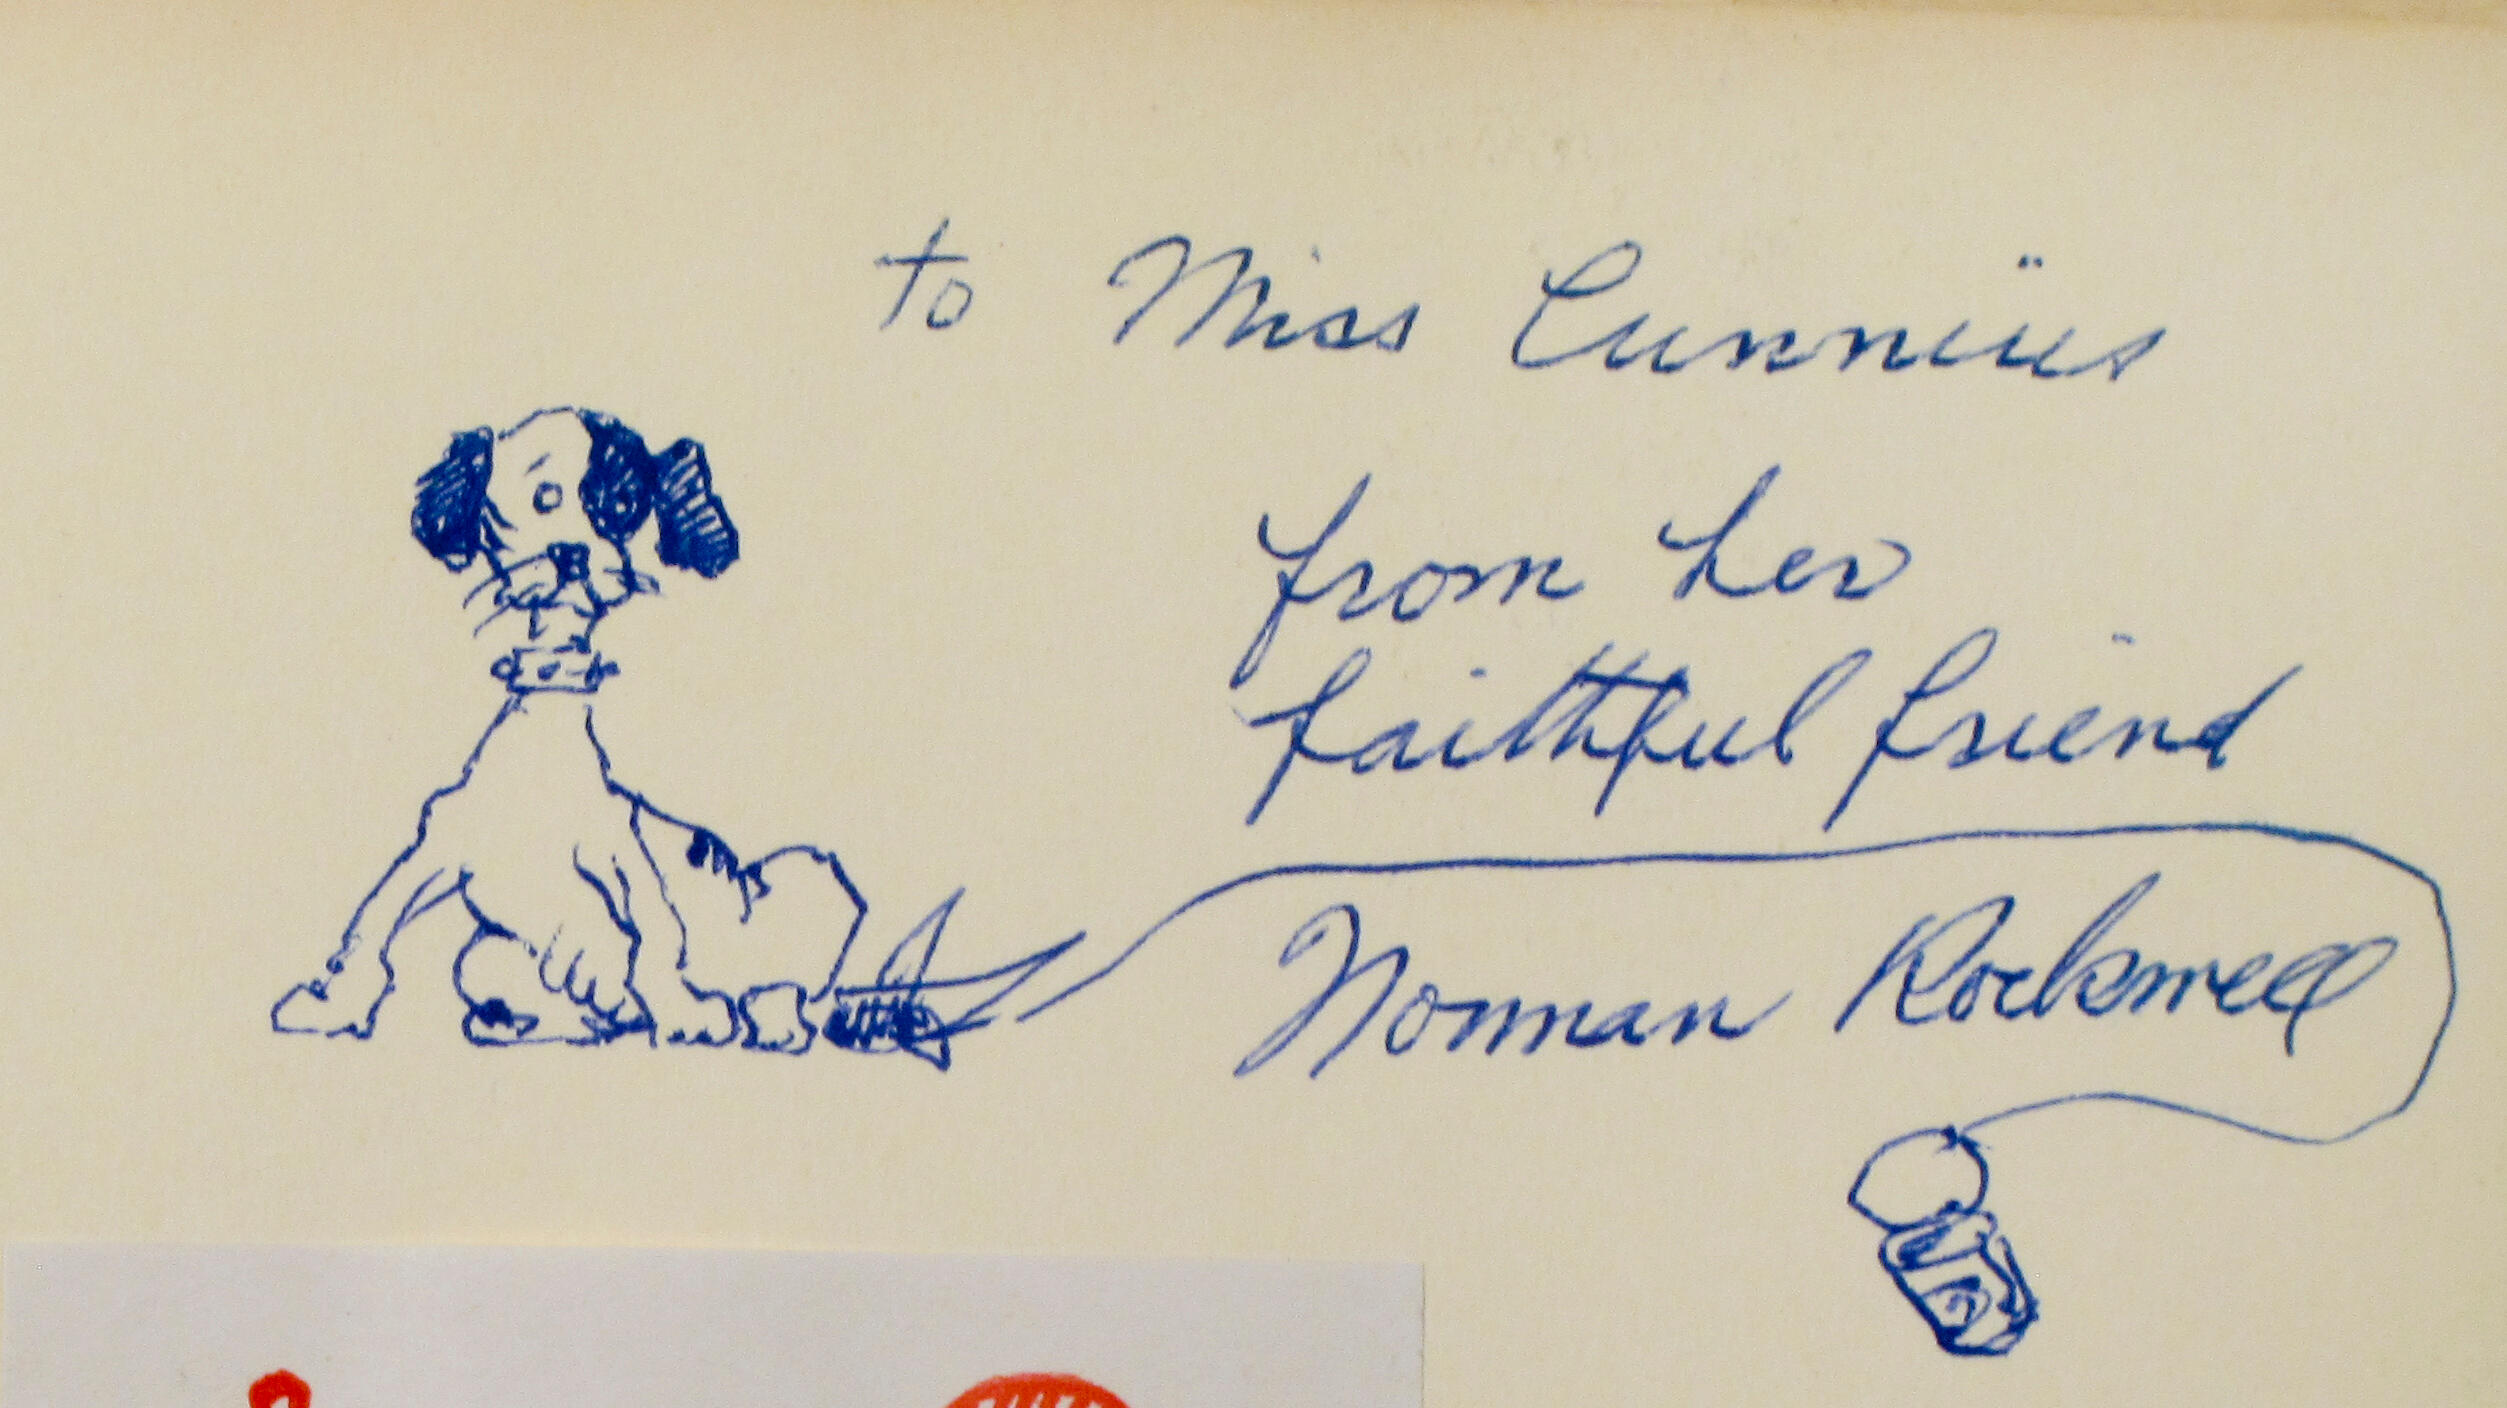 to Miss Cunnius
from her
faithful friend
Norman Rockwell